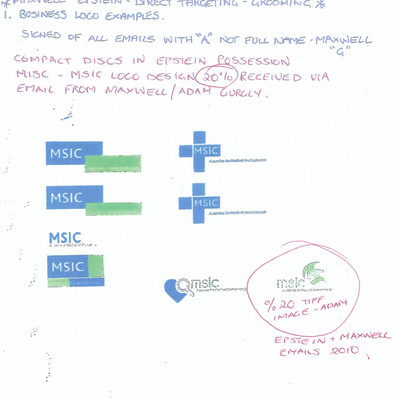 *MAXWELL EPSTEIN - DIRECT TARGETING - GROOMING *
1. BUSINESS LOGO EXAMPLES.
SIGNED OF ALL EMAILS WITH "A" NOT FULL NAME - MAXWELL
"G"
COMPACT DISCS IN EPSTEIN POSSESSION
MISC - MSIC LOGO DESIGN 20% RECEIVED VIA
EMAIL FROM MAXWELL/ADAM
MSIC
MSIC
MSIC
MSIC
MSIC
MSIC
msic
msic
% 20 TIFF
IMAGE - ADAM
EPSTEIN + MAXWELL
EMAILS 2010